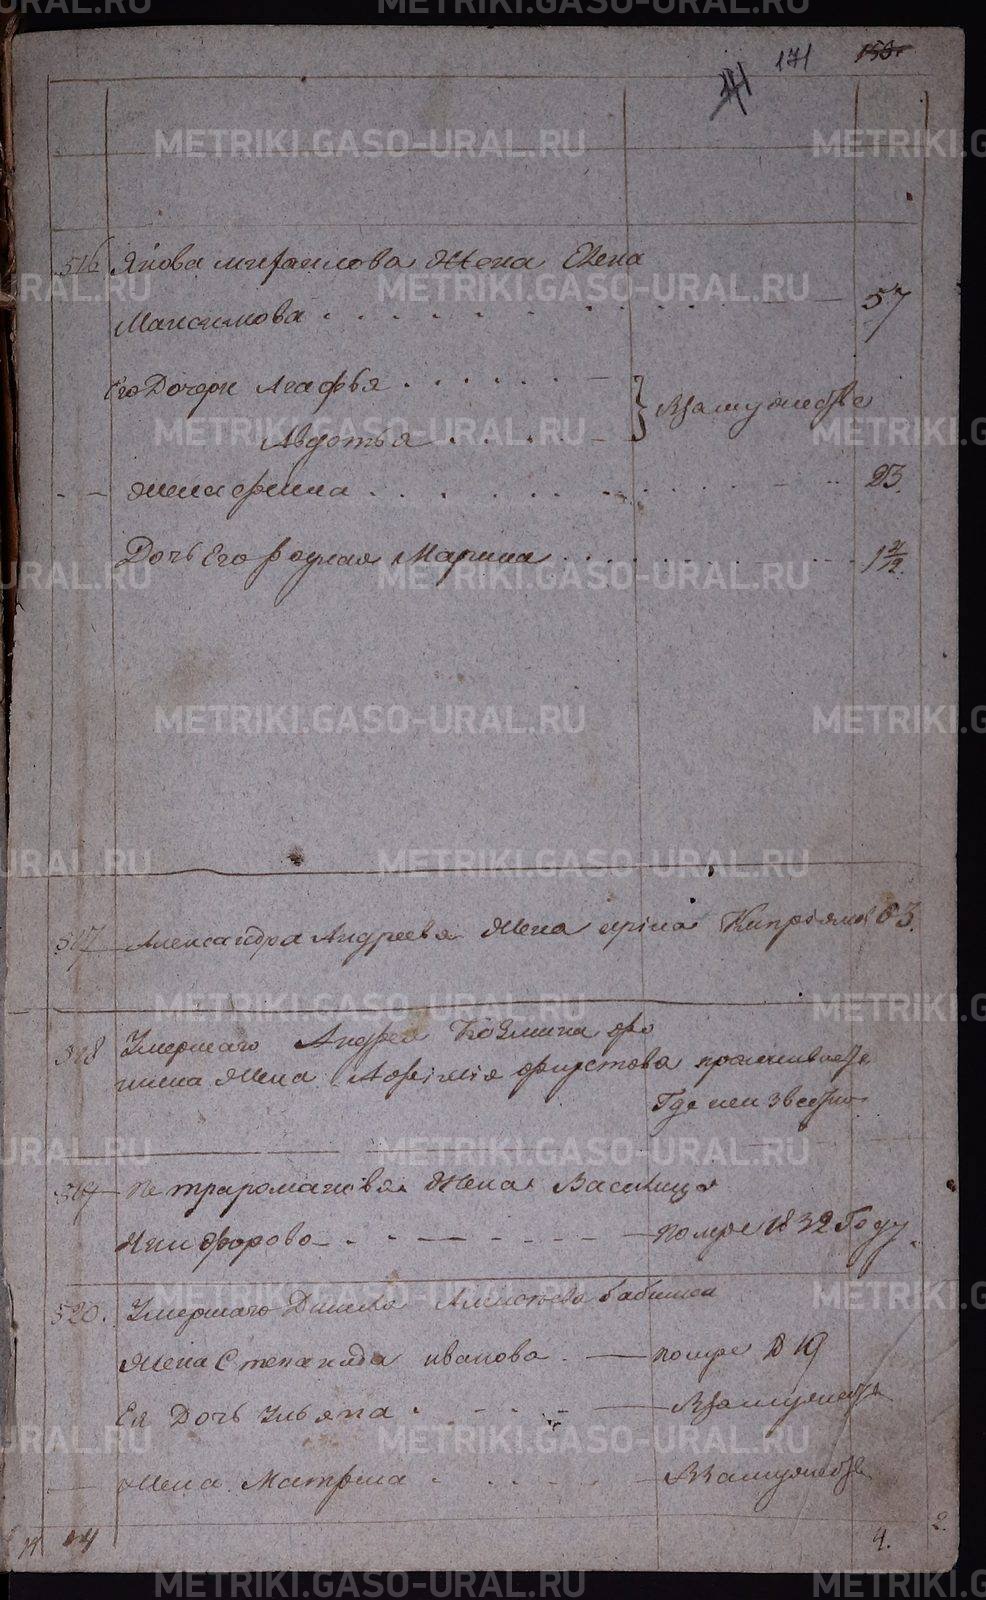 171 150
516 Якова михаилова Жена Елена
Максимова 57
Его Дочери Агафья
Взамужестве
Авдотья
Жена 23.
Дочь Его родная Марина 1 2/12.
517 Александра Андреева Жена ирина Киприянов 63.
518 Умершаго Андрея Козмина фо
мина Жена Афимия фирстова проживает
Где неизвестно
519 Петра романова Жена Василиса
Никифорова помре 1832 Году.
520. Умершаго Данила Алексеева бабина
Жена Степанида иванова помре В 19
Ея Дочь Ульяна Взамужестве
Жена Матрена Взамужестве
4. 2.
METRIKI.GASO-URAL.RU